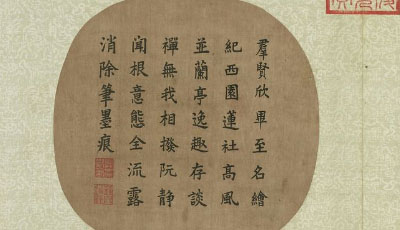 羣賢欣畢至名繪
紀西園蓮社高風
並蘭亭逸趣存談
禪無我相撥阮静
聞根意態全流露
消除筆墨痕